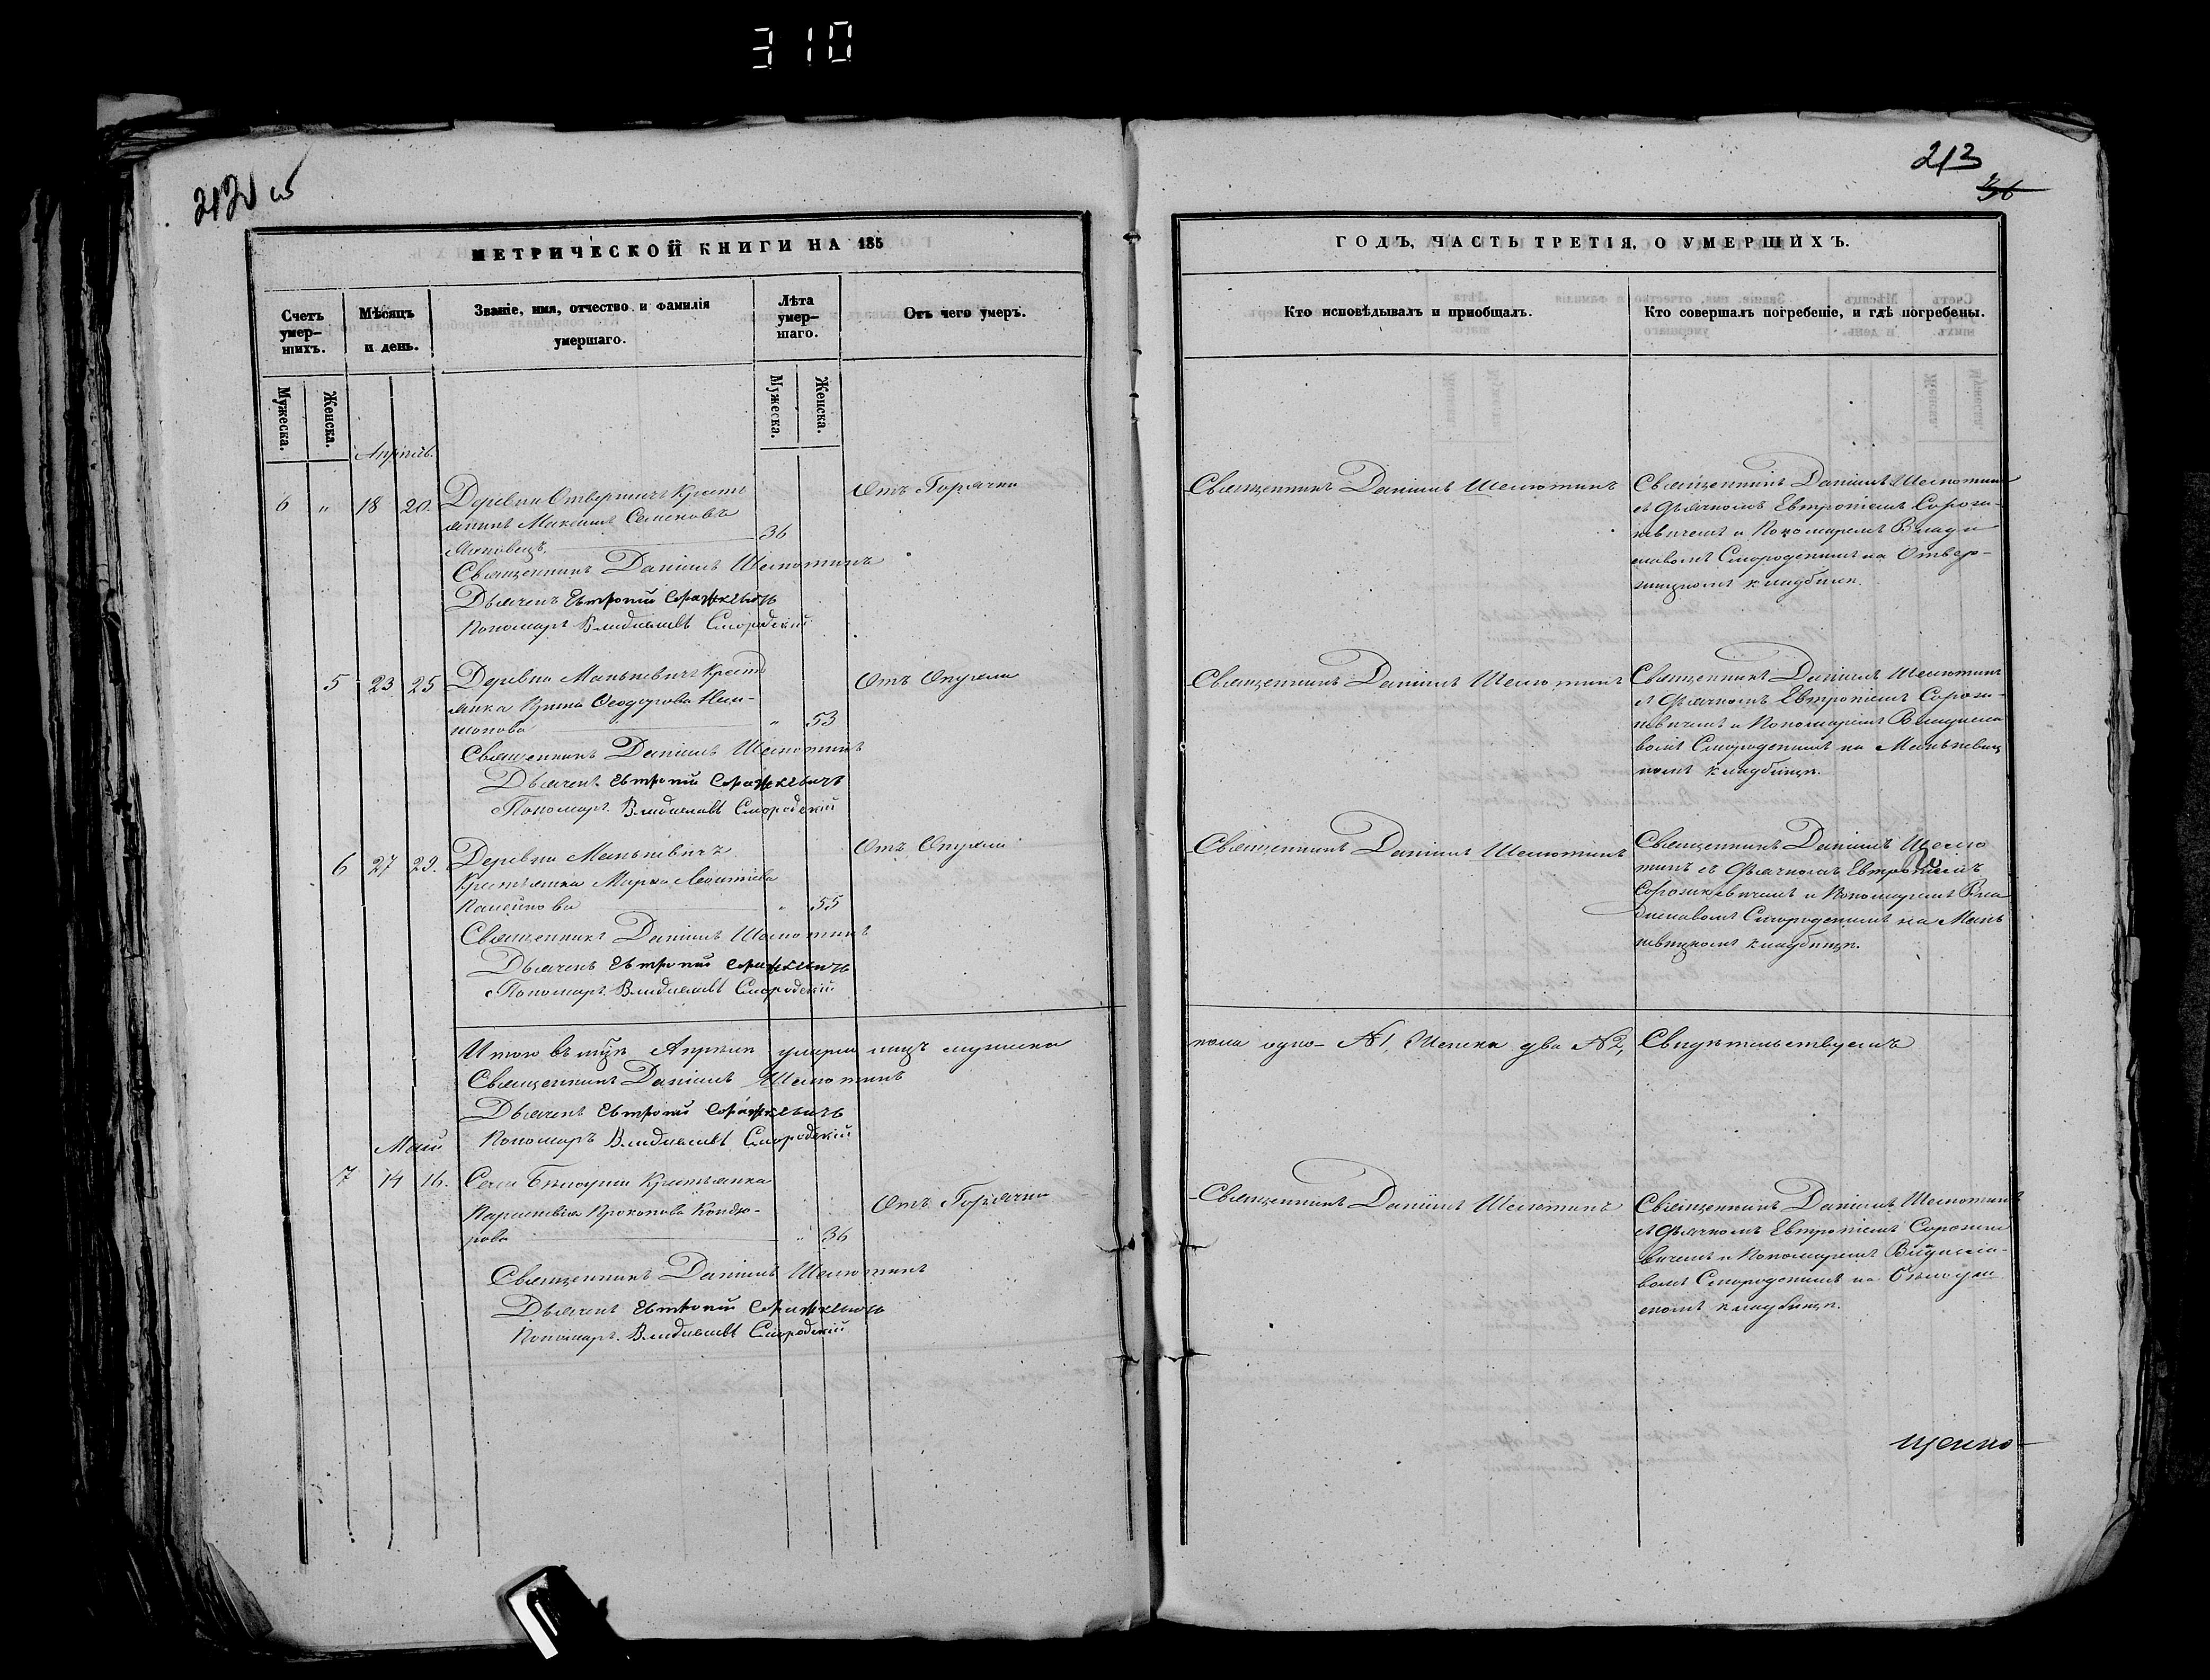 310
213
36
МЕТРИЧЕСКОЙ КНИГИ НА 185
Счетъ умер-
шихъ.
Мѣсяцъ
и день.
Званіе, имя, отчество и фамилія
умершаго.
Лѣта
умер-
шаго.
Отъ чего умеръ.
Мужеска.
Женска.
Мужеска.
Женска.
Апрѣль.
6 „ 18 20. Деревни Отвержичъ Кресть
янинъ Максимъ Семеновъ
36
Отъ Горячки
Священникъ Даніилъ Шеметилъ
Дьячекъ Евтропій Соражкевичъ
Пономарь Владиславъ Смородскій
5 23 25 Деревни Манькевичъ Кресть
янка Ѳеодорова
„ 53
Отъ Опухли
Священникъ Даніилъ Шеметилъ
Дьячекъ Евтропій Соражкевичъ
Пономарь Владиславъ Смородскій
6 27 29. Деревни Манькевичъ
Крестьянка Марѳа Леонтіева
„ 55
Отъ Опухли
Священникъ Даніилъ Шеметилъ
Дьячекъ Евтропій Соражкевичъ
Пономарь Владиславъ Смородскій
Итого въ Апрѣлѣ умерло лицъ мужеска
Священникъ Даніилъ Шеметилъ
Дьячекъ Евтропій Соражкевичъ
Пономарь Владиславъ Смородскій
Маій
7 14 16. Села Бѣлоуши Крестьянка
Параскевія Прокопова
„ 36
Отъ Горячки
Священникъ Даніилъ Шеметилъ
Дьячекъ Евтропій Соражкевичъ
Пономарь Владиславъ Смородскій
ГОДЪ, ЧАСТЬ ТРЕТІЯ, О УМЕРШИХЪ.
Кто исповѣдывалъ и пріобщалъ.
Кто совершалъ погребеніе, и гдѣ погребены.
Священникъ Даніилъ Шеметилъ
Священникъ Даніилъ Шеметилъ
съ Дьячкомъ Евтропіемъ Сорож-
кевичемъ и Пономаремъ Влади
славомъ Смородскимъ на Отвер-
жицкомъ кладбищѣ.
Священникъ Даніилъ Шеметилъ
Священникъ Даніилъ Шеметилъ
съ Дьячкомъ Евтропіемъ Сорож-
кевичемъ и Пономаремъ Владисла
вомъ Смородскимъ на Манькевиц
комъ кладбищѣ.
Священникъ Даніилъ Шеметилъ
Священникъ Даніилъ Шеме
тилъ съ Дьячкомъ Евтропіемъ
Сорожкевичемъ и Пономаремъ Вла
диславомъ Смородскимъ на Мань
кевицкомъ кладбищѣ.
пола одно № 1, Женска два № 2, Свидѣтельствуемъ
Священникъ Даніилъ Шеметилъ
Священникъ Даніилъ Шеметилъ
съ Дьячкомъ Евтропіемъ Сорожке
вичемъ и Пономаремъ Владисла-
вомъ Смородскимъ на Бѣлоуш
скомъ кладбищѣ.